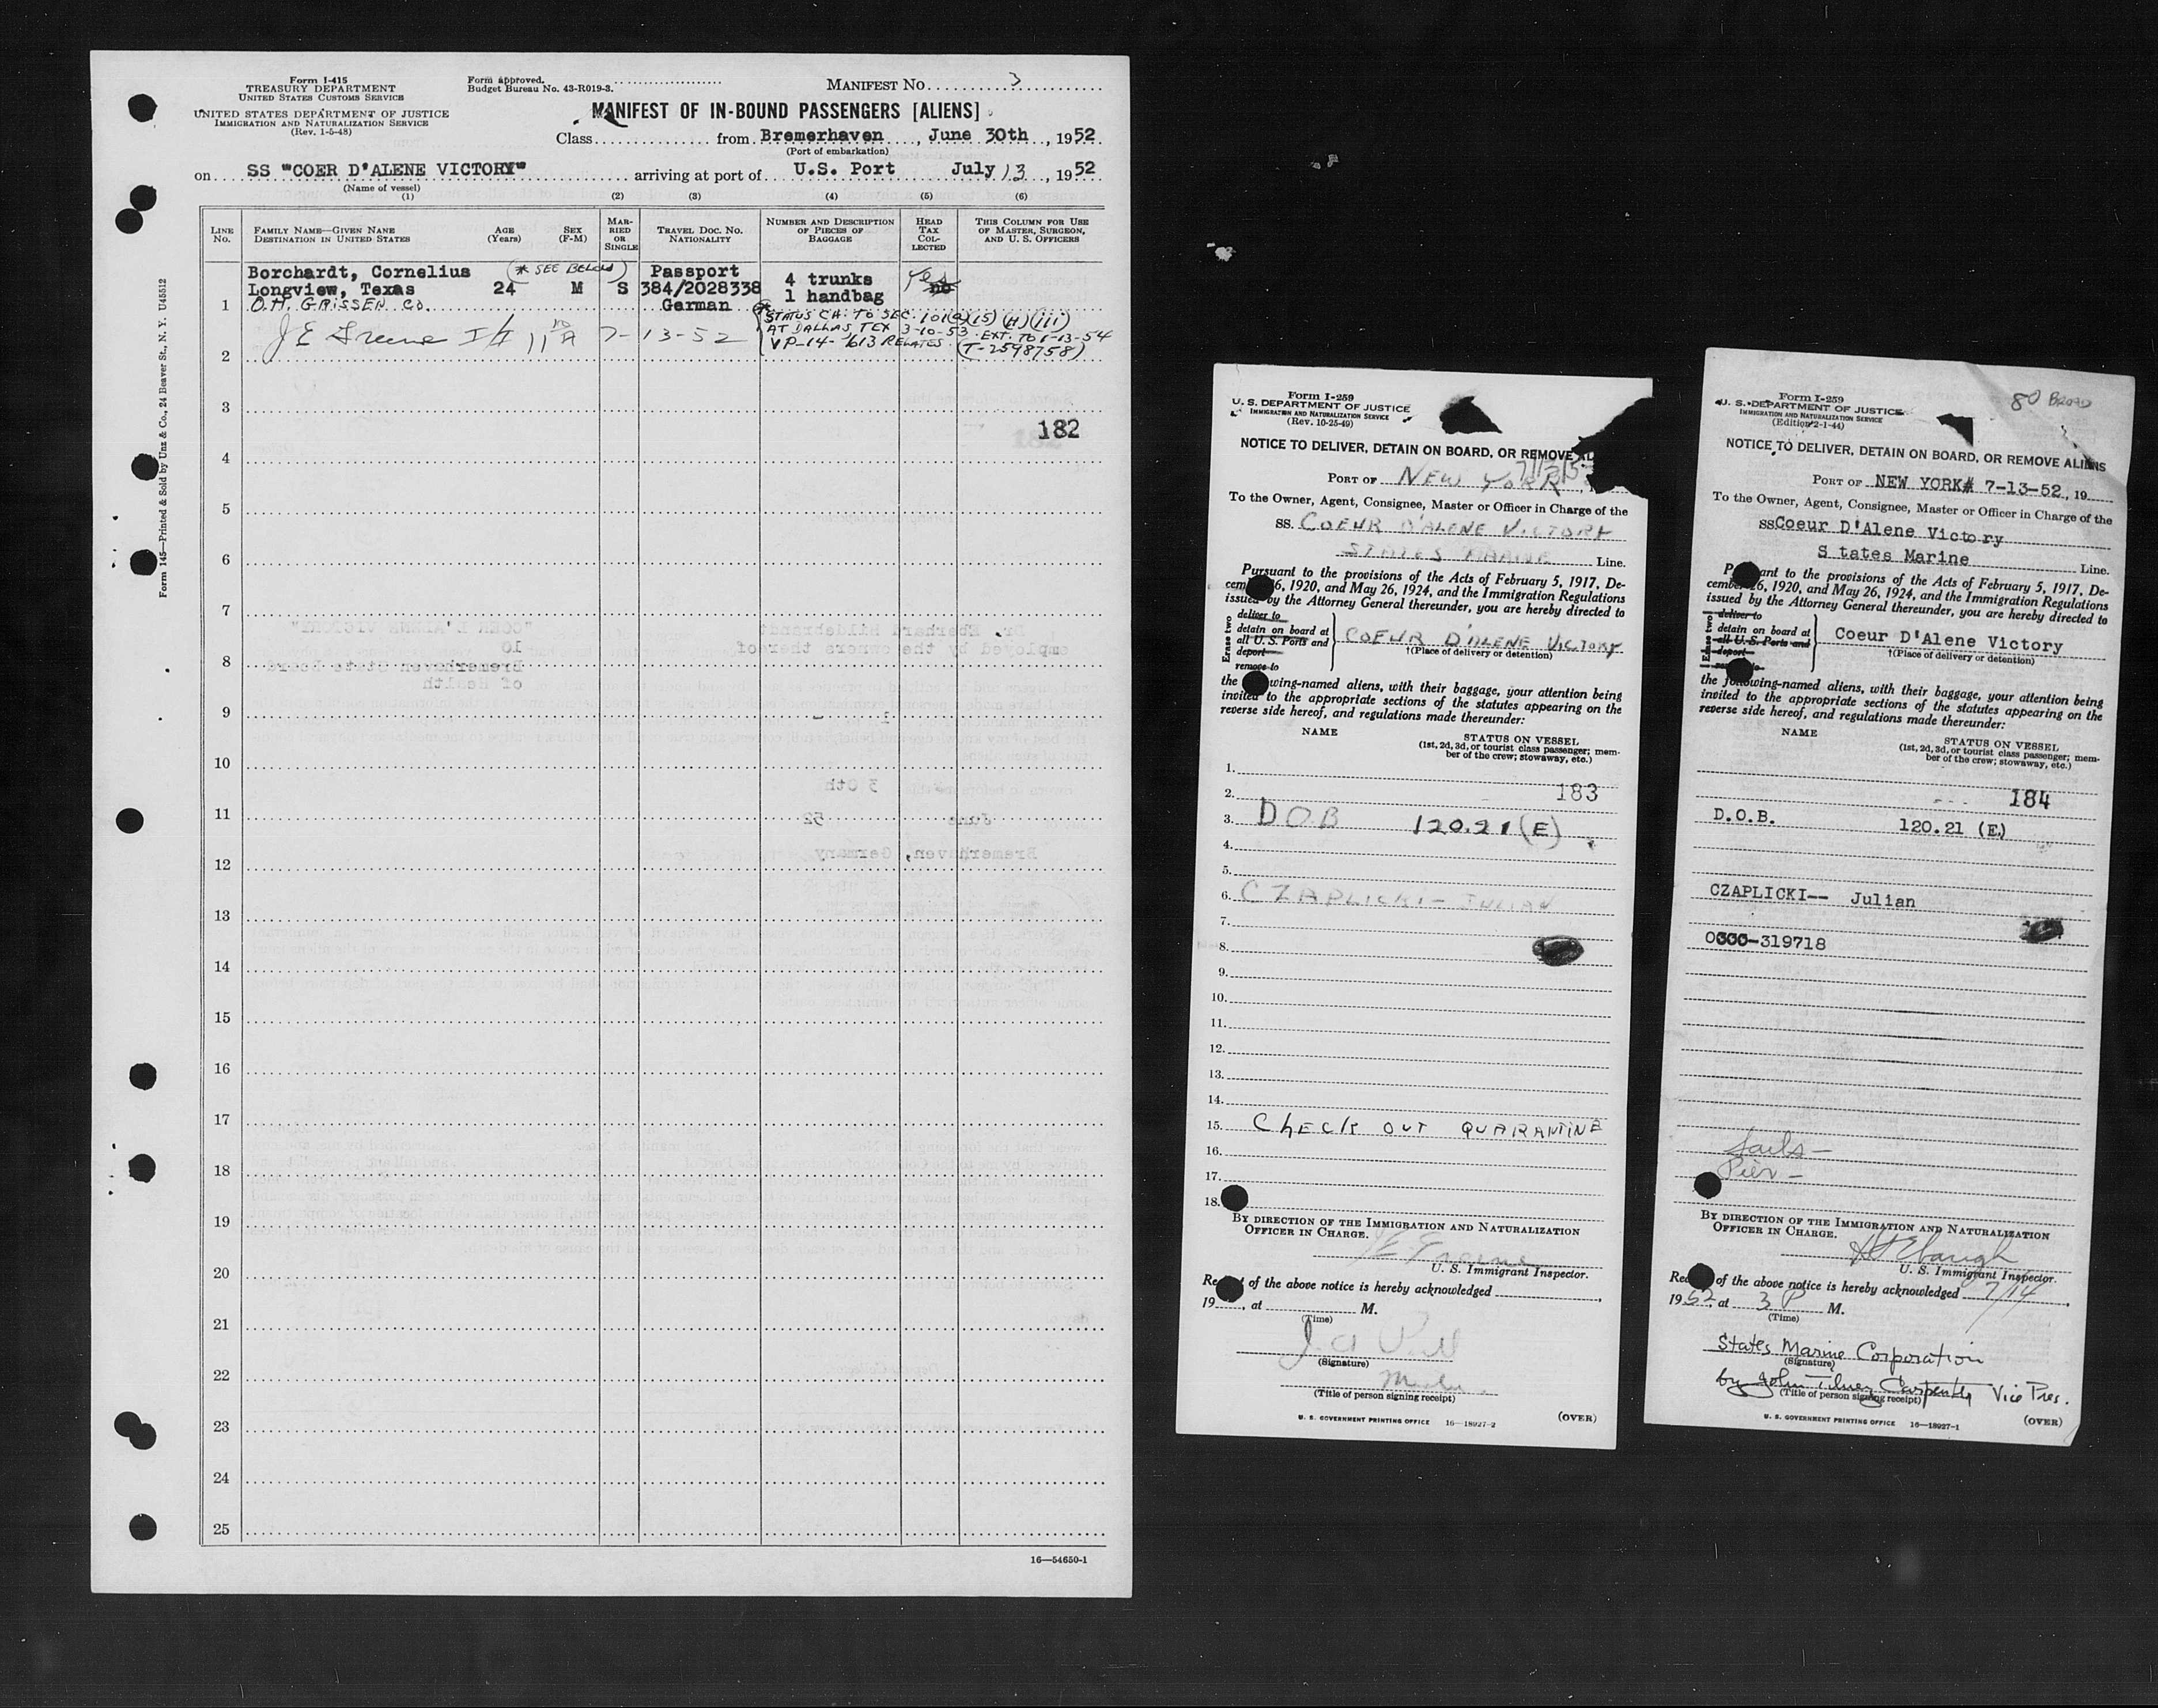 Form I-415
TREASURY DEPARTMENT
UNITED STATES CUSTOMS SERVICE
UNITED STATES DEPARTMENT OF JUSTICE
IMMIGRATION AND NATURALIZATION SERVICE
(Rev. 1-5-48)
Form approved.
Budget Bureau No. 43-R019-3.
MANIFEST No. 3
MANIFEST OF IN-BOUND PASSENGERS [ALIENS]
Class from Bremerhaven, June 30th, 1952
(Port of embarkation)
on SS "COER D'ALENE VICTORY" arriving at port of U.S. Port July 13, 1952
(Name of vessel)
(1) (2) (3) (4) (5) (6)
LINE No.
FAMILY NAME—GIVEN NAME
DESTINATION IN UNITED STATES
AGE (Years)
SEX (F-M)
MARRIED OR SINGLE
TRAVEL DOC. NO. NATIONALITY
NUMBER AND DESCRIPTION OF PIECES OF BAGGAGE
HEAD TAX COLLECTED
THIS COLUMN FOR USE OF MASTER, SURGEON, AND U. S. OFFICERS
Borchardt, Cornelius (* SEE BELOW) Passport 4 trunks Yes
Longview, Texas 24 M S 384/2028338 1 handbag no
1 O.H. GRISSEN CO. German
* STATUS CH. TO SEC. 101(a)(15)(H)(iii)
AT DALLAS TEX 3-10-53. EXT. TO 1-13-54
VP-14-1/613 RELATES. (T-2598758)
J E Greene 7-13-52
2
3
182
4
5
6
7
8
9
10
11
12
13
14
15
16
17
18
19
20
21
22
23
24
25
16—54650-1
Form 145—Printed & Sold by Unz & Co., 24 Beaver St., N. Y. U45512
Form I-259
U. S. DEPARTMENT OF JUSTICE
IMMIGRATION AND NATURALIZATION SERVICE
(Rev. 10-25-49)
NOTICE TO DELIVER, DETAIN ON BOARD, OR REMOVE AL
PORT OF NEW YORK
To the Owner, Agent, Consignee, Master or Officer in Charge of the
SS. COEUR D'ALENE VICTORY
STATES MARINE Line.
Pursuant to the provisions of the Acts of February 5, 1917, De-
cem 6, 1920, and May 26, 1924, and the Immigration Regulations
issued by the Attorney General thereunder, you are hereby directed to
Erase two
deliver to
detain on board at
all U.S. Ports and
deport
remove to
COEUR D'ALENE VICTORY
†(Place of delivery or detention)
the wing-named aliens, with their baggage, your attention being
invited to the appropriate sections of the statutes appearing on the
reverse side hereof, and regulations made thereunder:
NAME STATUS ON VESSEL
(1st, 2d, 3d, or tourist class passenger; mem-
ber of the crew; stowaway, etc.)
1.
2. 183
3. D.O.B 120.21 (E)
4.
5.
6. CZAPLICKI - JULIAN
7.
8.
9.
10.
11.
12.
13.
14.
15. CHECK OUT QUARANTINE
16.
17.
18.
BY DIRECTION OF THE IMMIGRATION AND NATURALIZATION
OFFICER IN CHARGE.
J E Greene
U. S. Immigrant Inspector.
Re of the above notice is hereby acknowledged
19 , at M.
(Time)
(Signature)
(Title of person signing receipt)
U. S. GOVERNMENT PRINTING OFFICE 16—18927-2 (OVER)
80 BROAD
Form I-259
U. S. DEPARTMENT OF JUSTICE
IMMIGRATION AND NATURALIZATION SERVICE
(Edition 2-1-44)
NOTICE TO DELIVER, DETAIN ON BOARD, OR REMOVE ALIENS
PORT OF NEW YORK 7-13-52, 19
To the Owner, Agent, Consignee, Master or Officer in Charge of the
SS Coeur D'Alene Victory
S tates Marine Line.
P ant to the provisions of the Acts of February 5, 1917, De-
cember 26, 1920, and May 26, 1924, and the Immigration Regulations
issued by the Attorney General thereunder, you are hereby directed to
Erase two
deliver to
detain on board at
all U.S. Ports and
deport
remove to
Coeur D'Alene Victory
†(Place of delivery or detention)
the following-named aliens, with their baggage, your attention being
invited to the appropriate sections of the statutes appearing on the
reverse side hereof, and regulations made thereunder:
NAME STATUS ON VESSEL
(1st, 2d, 3d, or tourist class passenger; mem-
ber of the crew; stowaway, etc.)
184
D.O.B. 120.21 (E)
CZAPLICKI-- Julian
0300-319718
Sails -
Pier -
BY DIRECTION OF THE IMMIGRATION AND NATURALIZATION
OFFICER IN CHARGE.
U. S. Immigrant Inspector.
Rec of the above notice is hereby acknowledged 7/14
1952, at 3 P M.
(Time)
States Marine Corporation
(Signature)
by John Tilney Carpenter Vice Pres.
(Title of person signing receipt)
U. S. GOVERNMENT PRINTING OFFICE 16—18927-1 (OVER)